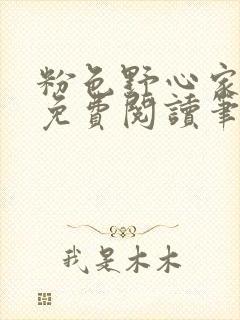 粉色野心家
免費閱讀筆
我是木木